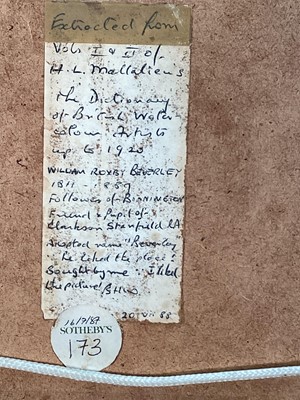 Extracted from
Vols I & II of
H.L. Mallalieu's
The Dictionary
of British Water
colour Artists
up to 1920
WILLIAM ROXBY BEVERLEY
1811 - 1889
Follower of BONINGTON
Friend & Pupil of
Clarkson Stanfield RA
Adopted name "Beverley"
he liked the place!
Bought by me : I liked
the picture! BHW
20 VII 88
16/7/87
SOTHEBY'S
173